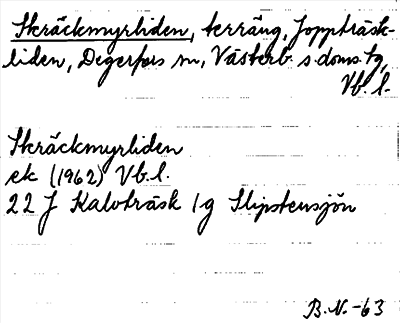 Skräckmyrliden, terräng, Joppträsk-
liden, Degerfors sn, Västerb. s. doms. tg,
Vb. l.
Skräckmyrliden
ek (1962) Vb. l.
22 J Kalvträsk 1g Slipstensjön
B.N. -63